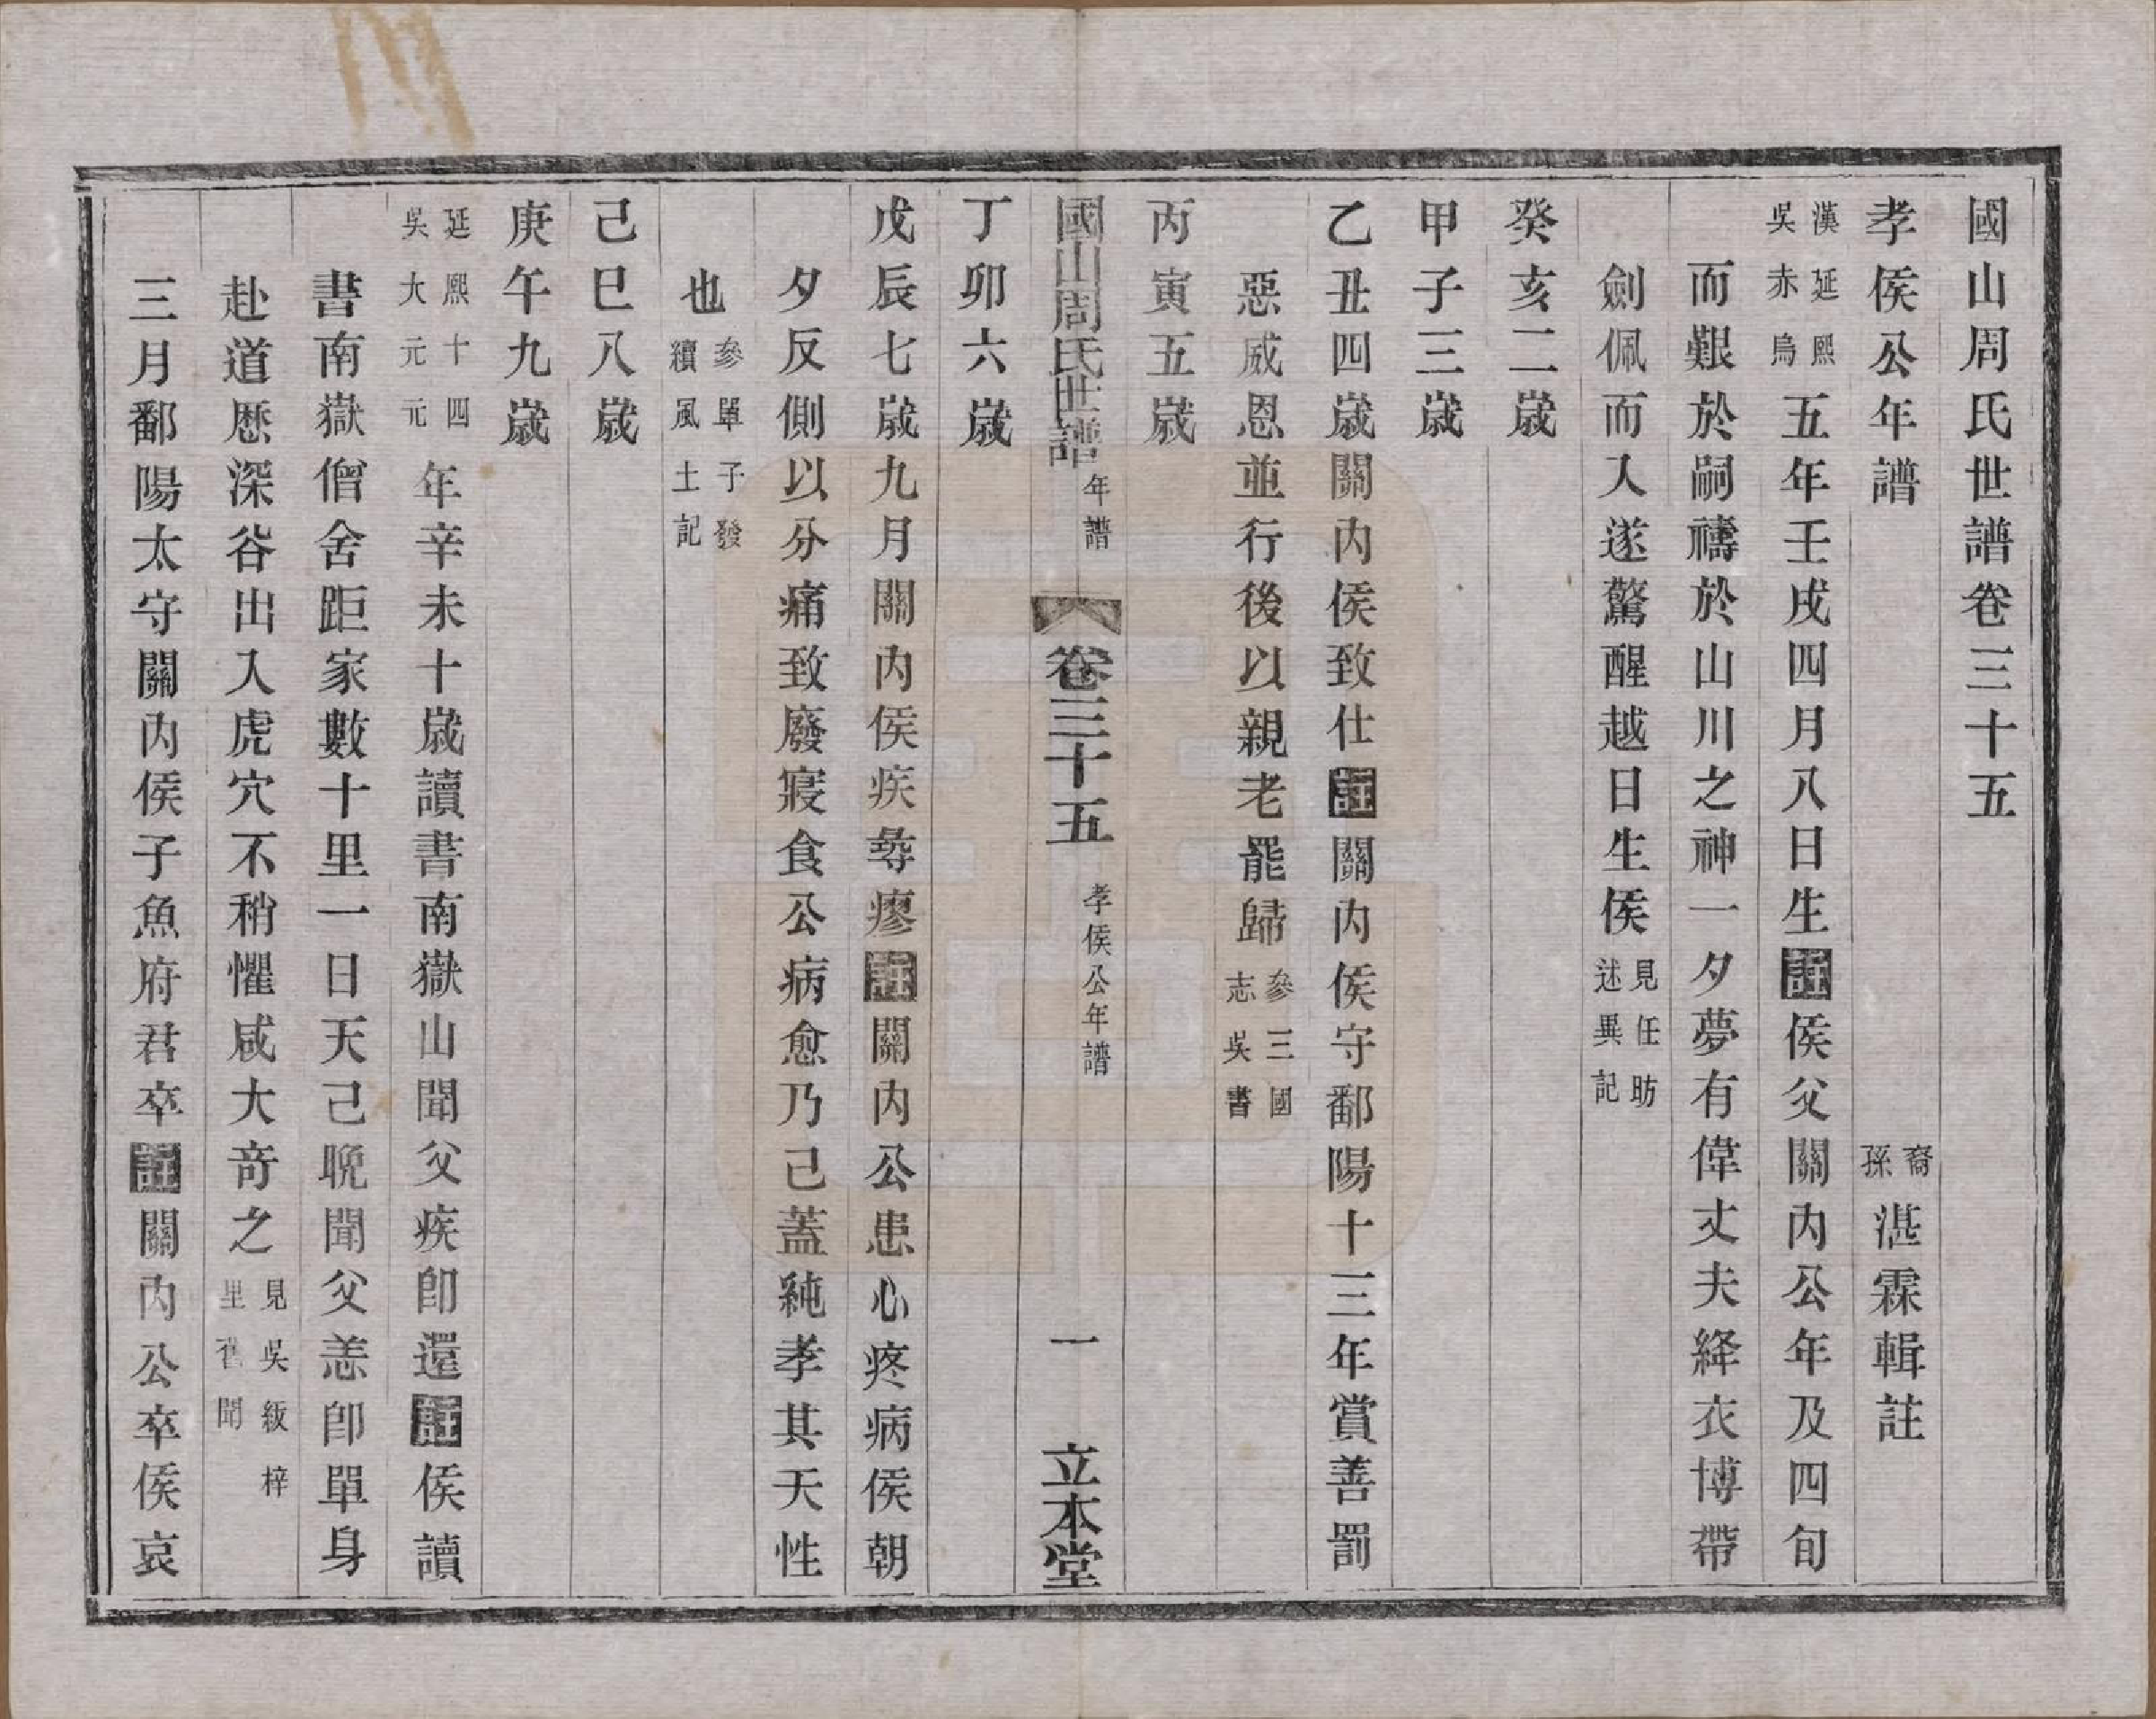 國山周氏世譜卷三十五
孝侯公年譜 裔孫湛霖輯註
漢延熙吳赤烏五年壬戌四月八日生註侯父關內公年及四旬
而艱於嗣禱於山川之神一夕夢有偉丈夫絳衣博帶
劍佩而入遂驚醒越日生侯見任昉述異記
癸亥二歲
甲子三歲
乙丑四歲關內侯致仕註關內侯守鄱陽十三年賞善罰
惡威恩並行後以親老罷歸參三國志吳書
丙寅五歲
國山周氏世譜 年譜 卷三十五 孝侯公年譜 一 立本堂
丁卯六歲
戊辰七歲九月關內侯疾尋瘳註關內公患心疼病侯朝
夕反側以分痛致廢寢食公病愈乃己蓋純孝其天性
也參單子發續風土記
己巳八歲
庚午九歲
延熙十四吳大元元年辛未十歲讀書南嶽山聞父疾卽還註侯讀
書南嶽僧舍距家數十里一日天己晚聞父恙卽單身
赴道歷深谷出入虎穴不稍懼咸大奇之見吳綬梓里舊聞
三月鄱陽太守關內侯子魚府君卒註關內公卒侯哀